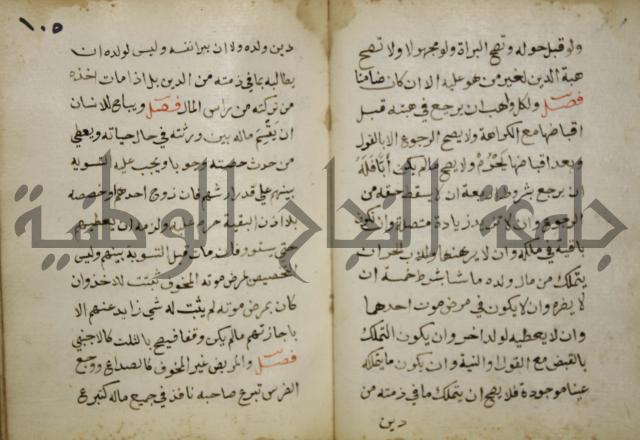 ولو قبل حوله وتصح البراة ولو مجهولا ولا تصح
هبة الدين لغير من هو عليه الا ان كان ضامنا
فصل ولكل واهب ان يرجع في هبته قبل
اقباضها مع الكراهة ولا يصح الرجوع الا بالقول
وبعد اقباضها يحرم ولا يصح ما لم يكن أبا فله
ان يرجع بشروط اربعة ان لا يسقط حقه من
الرجوع وان لا تزيد زيادة متصلة وان تكون
باقية في ملكه وان لا يرهنها وللاب الحر ان
يتملك من مال ولده ما شا بشرط خمسة ان
لا يضره وان لا يكون في مرض موت احدهما
وان لا يعطيه لولد اخر وان يكون التملك
بالقبض مع القول او النية وان يكون ما يتملكه
عينا موجودة فلا يصح ان يتملك ما في ذمته من
دين
١٠٥
دين ولده ولا ان يبرا نفسه وليس لولده ان
يطالبه بما في ذمته من الدين بل اذا مات اخذه
من تركته من راس المال فصل ويباح للانسان
ان يقسم ماله بين ورثته في حال حياته ويعطي
من حدث حصته وجوبا ويجب عليه التسوية
بينهم على قدر ارثهم فان زوج احدهم او خصصه
بلا اذن البقية حرم عليه ولزمه ان يعطيهم
حتى يستووا فان مات قبل التسوية بينهم وليس
التخصيص بمرض موته المخوف ثبتت للاخذ وان
كان بمرض موته لم يثبت له شي زايد عنهم الا
باجازتهم ما لم يكن وقفا فيصح بالثلث كالاجنبي
فصل والمريض غير المخوف كالصداع ووجع
الضرس تبرع صاحبه نافذ في جميع ماله كتبرع
جامعة النجاح الوطنية